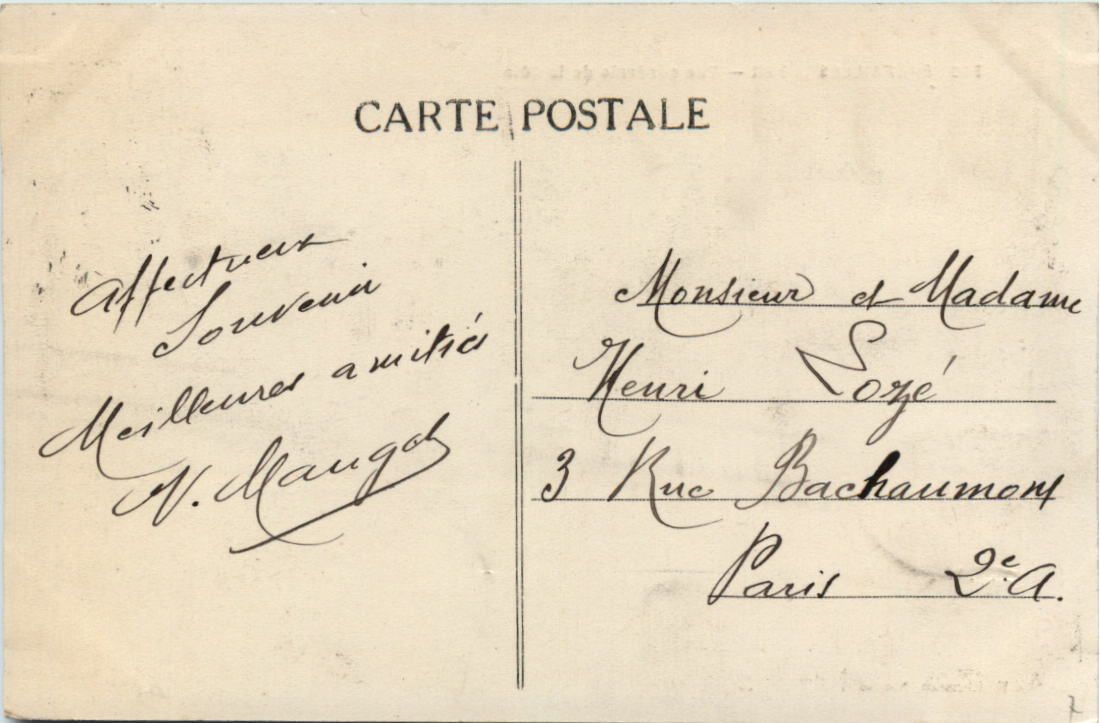 CARTE POSTALE
Affectueux
Souvenir
Meilleures amitiés
N.
Monsieur et Madame
Henri Lozé
3 Rue Bachaumont
Paris 2e A.